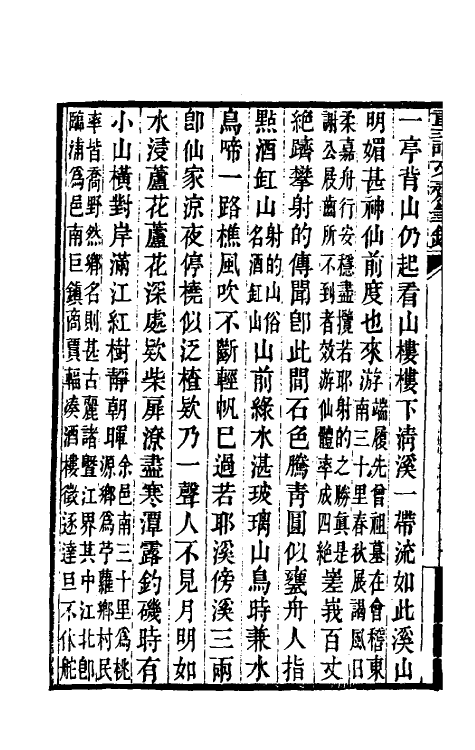 一亭背山仍起看山樓樓下淸溪一帶流如此溪山
明媚甚神仙前度也來游
端履先曾祖墓在會稽東
南三十里春秋展謁風日
柔嘉舟行安穩盡攬若耶射的之勝眞是
謝公屐齒所不到者效游仙體率成四絕
嵳峩百丈
絕躋攀射的傳聞卽此間石色騰靑圓似甕舟人指
點酒缸山
射的山俗
名酒缸山
山前綠水湛玻璃山鳥時兼水
鳥啼一路樵風吹不斷輕帆已過若耶溪傍溪三兩
卽仙家涼夜停橈似泛楂欵乃一聲人不見月明如
水浸蘆花蘆花深處欵柴屝潦盡寒潭露釣磯時有
小山橫對岸滿江紅樹靜朝暉
余邑南三十里爲桃
源鄉爲苧蘿鄉村民
率皆喬野然鄉名則甚古麗諸曁江界其中江北卽
臨浦爲邑南巨鎭商賈輻湊酒樓徵逐達旦不休舵